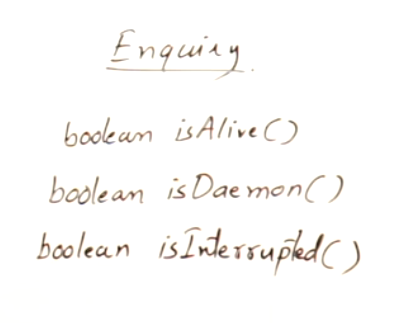 Enquiry.
boolean isAlive()
boolean isDaemon()
boolean isInterrupted()